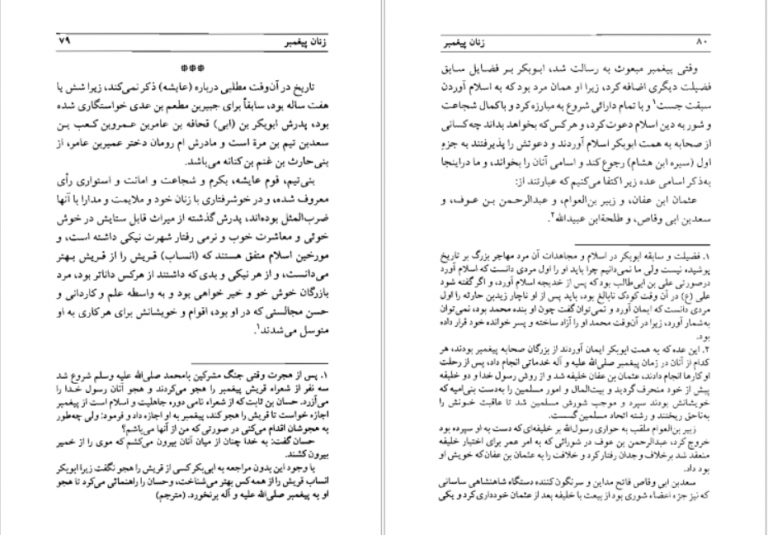 زنان پیغمبر ۷۹
***
تاریخ در آن‌وقت مطلبی درباره (عایشه) ذکر نمی‌کند، زیرا شش یا
هفت ساله بود، سابقاً برای جبیربن مطعم بن عدی خواستگاری شده
بود، پدرش ابوبکر بن (ابی) قحافه بن عامربن عمروبن کعب بن
سعدبن تیم بن مرة است و مادرش ام رومان دختر عمیربن عامر، از
بنی‌حارث بن غنم بن کنانه می‌باشد.
بنی‌تیم، قوم عایشه، بکرم و شجاعت و امانت و استواری رأی
معروف شده، و در خوشرفتاری با زنان خود و ملایمت و مدارا با آنها
ضرب‌المثل بوده‌اند، پدرش گذشته از میراث قابل ستایش در خوش
خوئی و معاشرت خوب و نرمی رفتار شهرت نیکی داشته است، و
مورخین اسلام متفق هستند که (انساب) قریش را از قریش بهتر
می‌دانست، و از هر نیکی و بدی که داشتند از هرکس داناتر بود، مرد
بازرگان خوش خو و خیر خواهی بود و به واسطه علم و کاردانی و
حسن مجالستی که در او بود، اقوام و خویشانش برای هرکاری به او
متوسل می‌شدند۱.
۱. پس از هجرت وقتی جنگ مشرکین بامحمد صلی‌الله علیه وسلم شروع شد
سه نفر از شعراء قریش پیغمبر را هجو می‌کردند و هجو آنان رسول خدا را
می‌آزرد. حسان بن ثابت که از شعراء نامی دوره جاهلیت و اسلام است از پیغمبر
اجازه خواست تا قریش را هجو کند، پیغمبر به او اجازه داد و فرمود: ولی چه‌طور
به هجوشان اقدام می‌کنی در صورتی که من از آنها می‌باشم؟
حسان گفت: به خدا چنان از میان آنان بیرون می‌کشم که موی را از خمیر
بیرون کشند.
با وجود این بدون مراجعه به ابی‌بکر کسی از قریش را هجو نگفت زیرا ابوبکر
انساب قریش را از همه‌کس بهتر می‌شناخت، وحسان را راهنمائی می‌کرد تا هجو
او به پیغمبر صلی‌الله علیه و آله برنخورد. (مترجم)
۸۰ زنان پیغمبر
وقتی پیغمبر مبعوث به رسالت شد، ابوبکر بر فضایل سابق
فضیلت دیگری اضافه کرد، زیرا او همان مرد بود که به اسلام آوردن
سبقت جست۱ و با تمام دارائی شروع به مبارزه کرد و باکمال شجاعت
و شور به دین اسلام دعوت کرد، و هرکس که بخواهد بداند چه‌کسانی
از صحابه به همت ابوبکر اسلام آوردند و دعوتش را پذیرفتند به جزء
اول (سیره ابن هشام) رجوع کند و اسامی آنان را بخواند، و ما دراینجا
به‌ذکر اسامی عده زیر اکتفا می‌کنیم که عبارتند از:
عثمان ابن عفان، و زبیر بن‌العوام، و عبدالرحمن بن عوف، و
سعدبن ابی وقاص، و طلحةابن عبیدالله۲.
۱. فضیلت و سابقه ابوبکر در اسلام و مجاهدات آن مرد مهاجر بزرگ بر تاریخ
پوشیده نیست ولی ما نمی‌دانیم چرا باید او را اول مردی دانست که اسلام آورد
درصورتی علی بن ابی‌طالب بود که پس از خدیجه اسلام آورد، و اگر گفته شود
علی (ع) در آن وقت کودک نابالغ بود، باید پس از او ناچار زیدبن حارثه را اول
مردی دانست که ایمان آورد و نمی‌توان گفت چون او بنده محمد بود، نمی‌توان
به‌شمار آورد، زیرا در آن‌وقت محمد او را آزاد ساخته و پسر خوانده خود قرار داده
بود.
۲. این عده که به همت ابوبکر ایمان آوردند از بزرگان صحابه پیغمبر بودند، هر
کدام از آنان در زمان پیغمبر صلی‌الله علیه و آله خدماتی انجام داد، پس از رحلت
او کارها انجام دادند، عثمان بن عفان خلیفه شد و از روش رسول خدا و دو خلیفه
پیش از خود منحرف گردید و بیت‌المال و امور مسلمین را به‌دست بنی‌امیه که
خویشانش بودند سپرد و موجب شورش مسلمین شد تا عاقبت خونش را
به‌ناحق ریختند و رشته اتحاد مسلمین گسست.
زبیر بن‌العوام ملقب به حواری رسول‌الله بر خلیفه‌ای که دست به او سپرده بود
خروج کرد، عبدالرحمن بن عوف در شورائی که به امر عمر برای اختیار خلیفه
منعقد شد برخلاف وجدان رفتار کرد و خلافت را به عثمان بن عفان که خویش او
بود داد.
سعدبن ابی وقاص فاتح مداین و سرنگون کننده دستگاه شاهنشاهی ساسانی
که نیز جزء اعضاء شوری بود از بیعت با خلیفه بعد از عثمان خودداری کرد و یکی